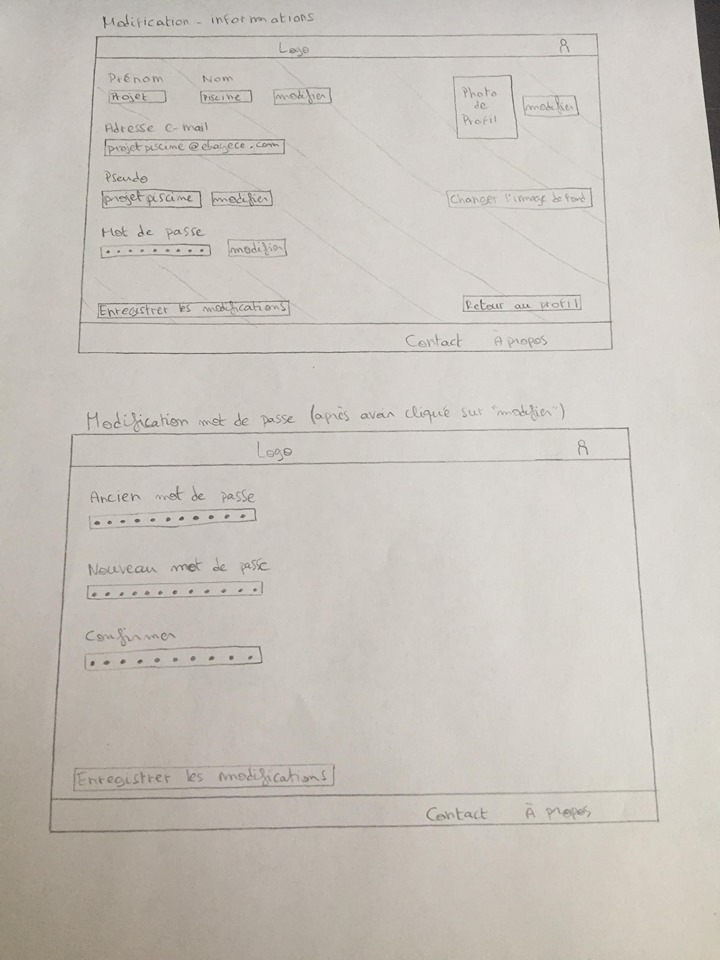 Modification - informations
Logo
Prénom Nom
Projet Piscine modifier
Photo de Profil modifier
Adresse e-mail
projetpiscine@ebayece.com
Pseudo
projetpiscine modifier
Changer l'image de fond
Mot de passe
modifier
Enregistrer les modifications
Retour au profil
Contact À propos
Modification mot de passe (après avoir cliqué sur "modifier")
Logo
Ancien mot de passe
Nouveau mot de passe
Confirmer
Enregistrer les modifications
Contact À propos